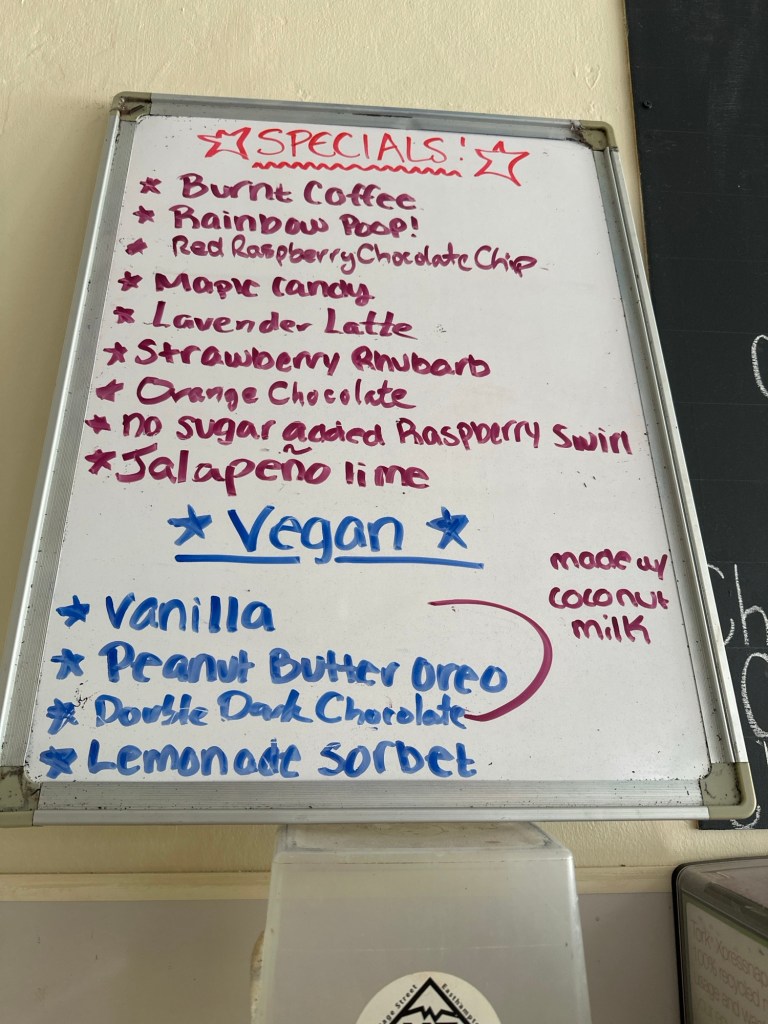 SPECIALS!
Burnt Coffee
Rainbow Poop!
Red Raspberry Chocolate Chip
Maple Candy
Lavender Latte
Strawberry Rhubarb
Orange Chocolate
no sugar added Raspberry Swirl
Jalapeño lime
Vegan
Vanilla
Peanut Butter oreo
Double Dark Chocolate
Lemonade Sorbet
made w/
coconut
milk
Ch